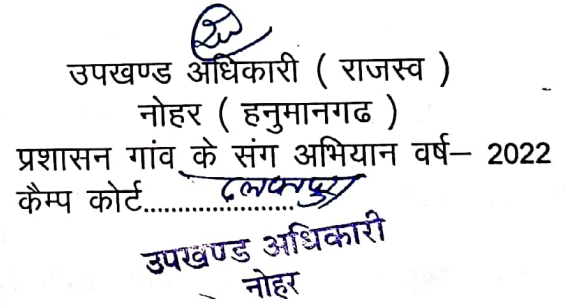 उपखण्ड अधिकारी ( राजस्व )
नोहर ( हनुमानगढ )
प्रशासन गांव के संग अभियान वर्ष– 2022
कैम्प कोर्ट......................
उपखण्ड अधिकारी
नोहर